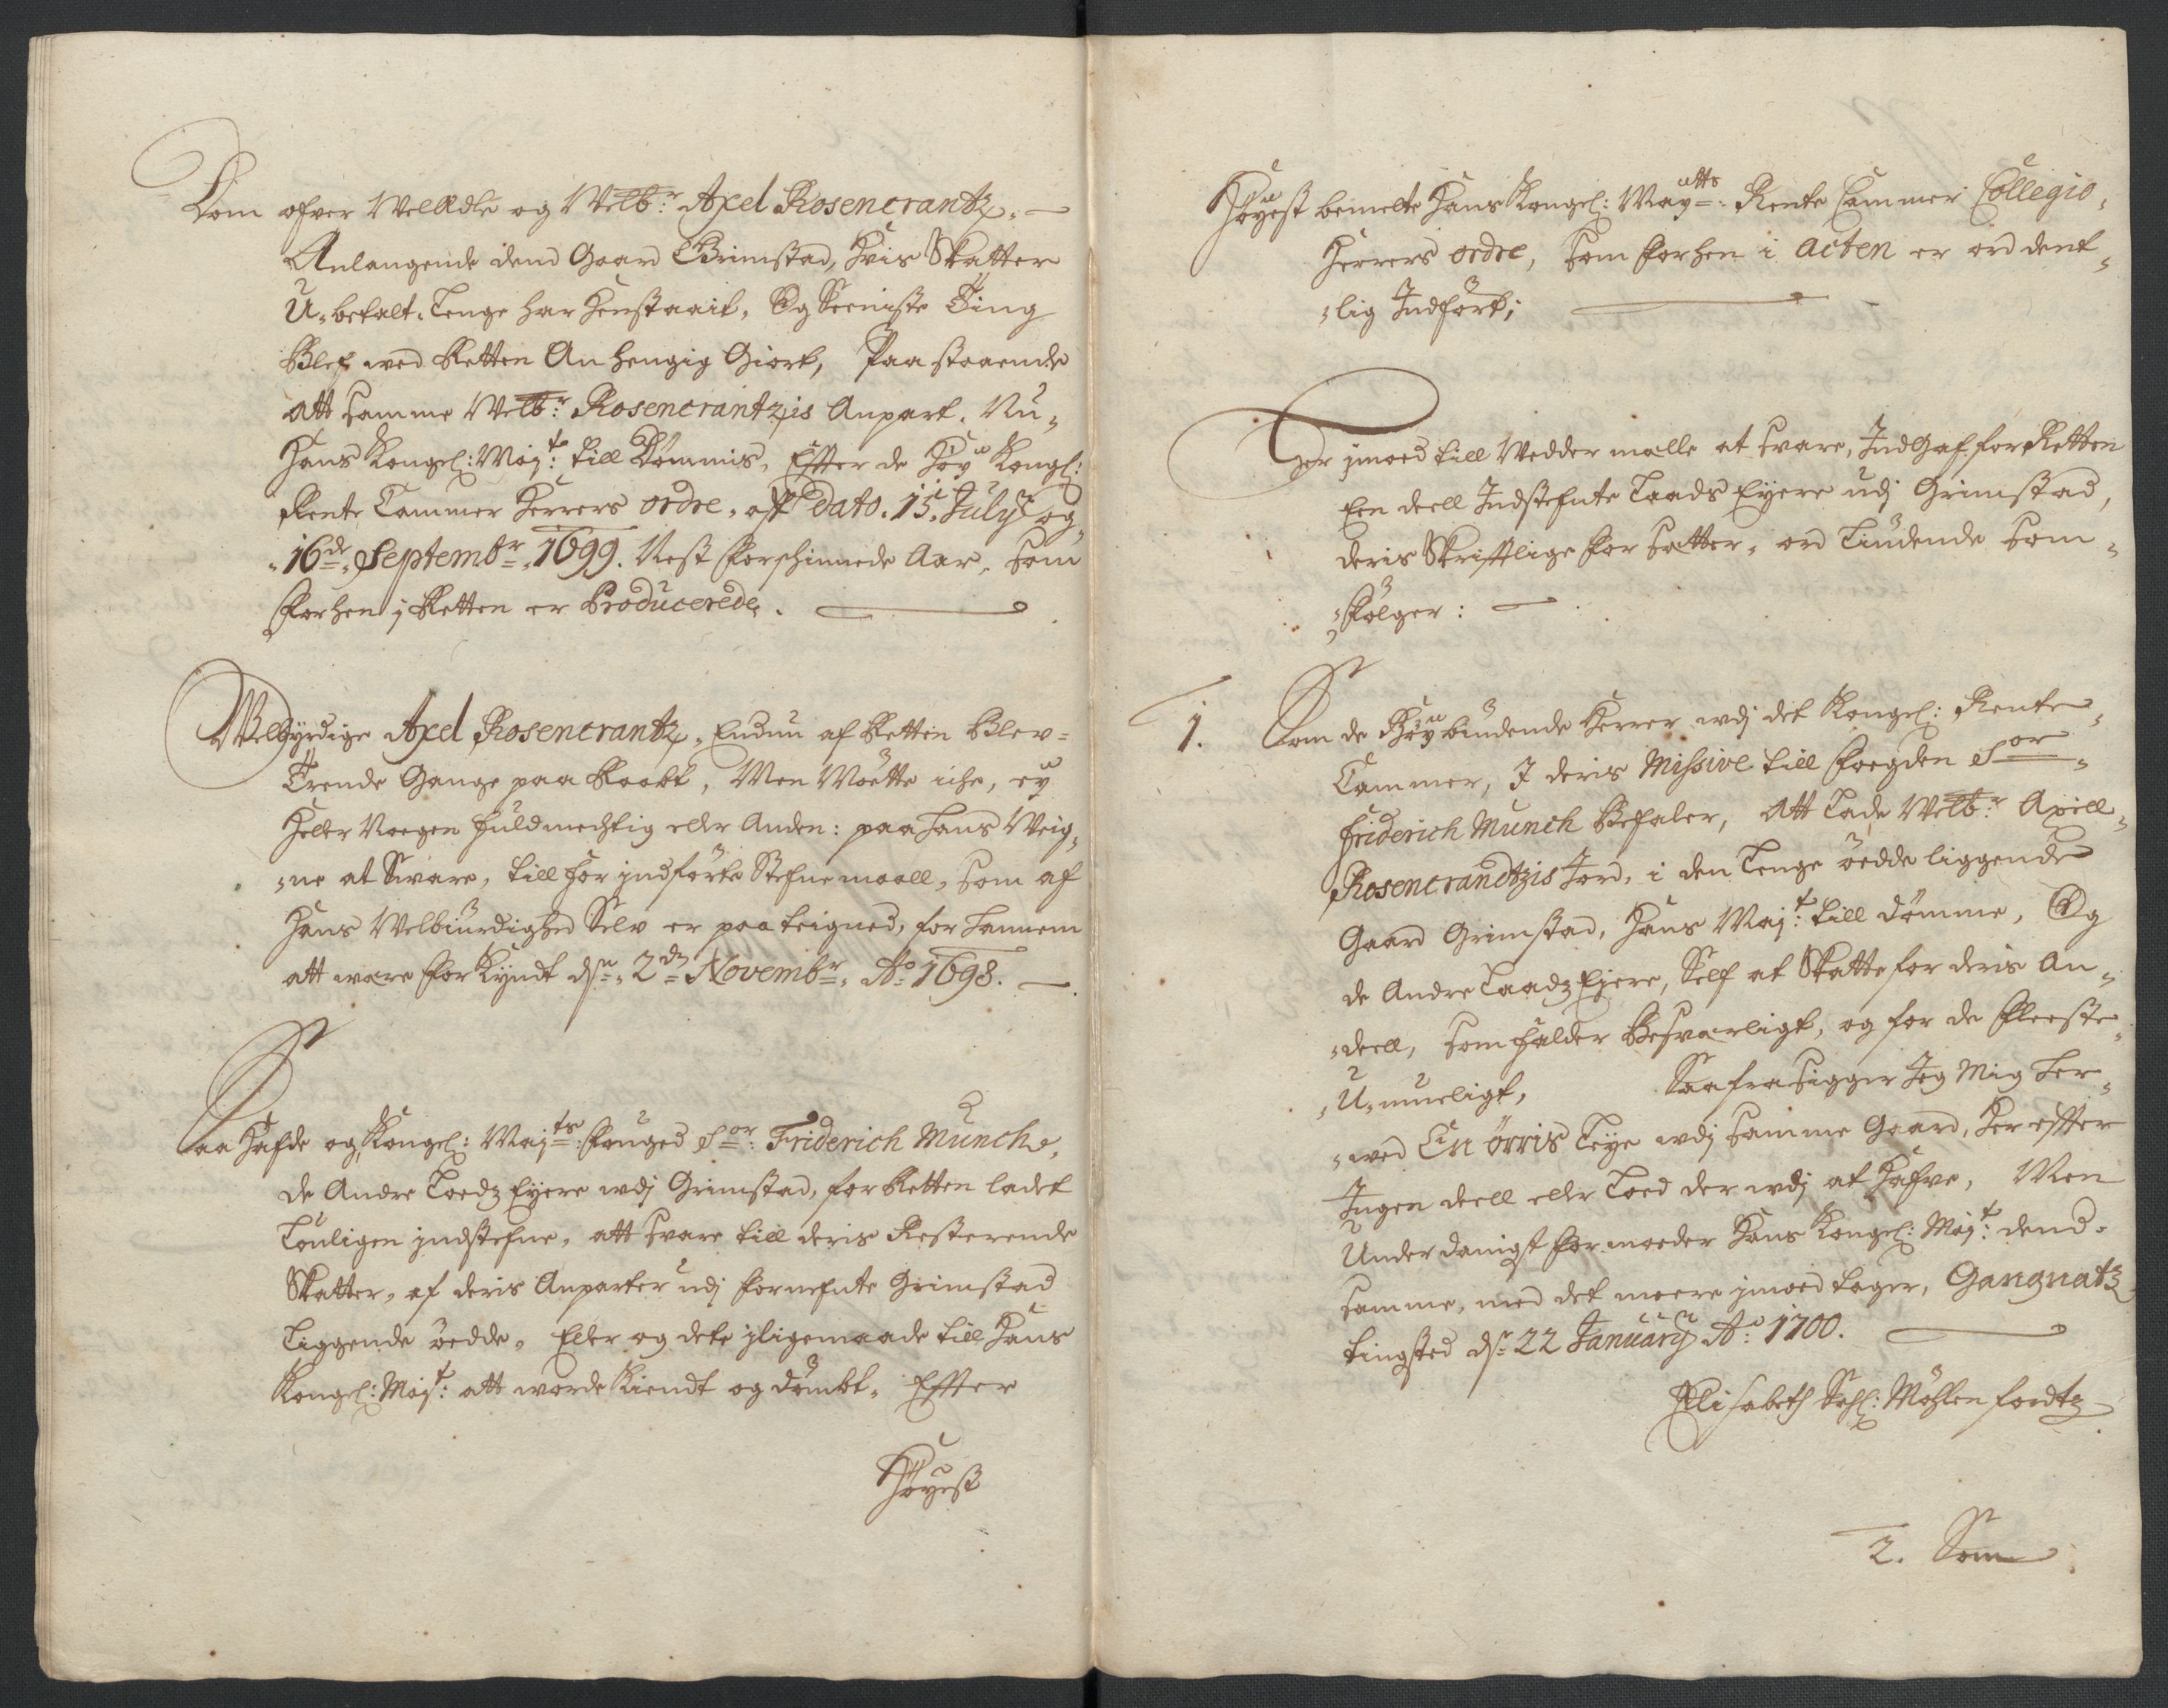 Dom ofver Velædle og Velb:r Axel Rosencrantz,
Anlangende dend Gaard Grimstad, Hvis Skatter
U-betalt Lenge har Henstaait, Og Seeniste Ting
Blef wed Retten An hengig Giort, Paastaaende
att samme Velb:r Rosencrantzis Anpart, Nu-
Hans Kongel: Maj:t till Dømmis, Effter de Høy Kongl:
Rente Cammer Herrers ordre, aff dato. 15. July og
16de Septembr 1699. Nest forschinnede Aar, som
forhen j Retten er Producerede.
Velbyrdige Axel Rosencrantz, Endnu af Retten Blev
Trende Gange paa Raabt, Men Møtte iche, ey
Heller Noegen fuldmechtig eller Anden: paa Hans Veig-
ne at Svare, till for jndførte Stefnemaall, som af
Hans Velbiurdighed Selv er paateigned, for hannem
att were for Kyndt dn 2de Novembr Ao 1698.
Saa Hafde og Kongel: Maj:ts fouged Sor: Friderich Munch,
de Andre Lodz Eyere wdj Grimstad, for Retten ladet
Louligen jndstefne, att svare till deris Resterende
Skatter, af deris Anparter udj fornefnte Grimstad
Liggende øedde, Eller og dete jligemaade till Hans
Kongel: Maj:t: att worde Kiendt og dømbt, Effter
Høyest
Høyest bemelte Hans Kongel: May:atts Rente Cammer Collegio
Herrers ordre, som forhen i acten er ord dent-
lig Jndført;
Der jmoed till Vedder malle at svare, Jndgaf for Retten
Een deell Jndstefnte Laads Eyere udj Grimstad,
deris Skrifftlige for satter, ord Liudende som
følger:
1. Som de Høybiudende Herrer wdj det Kongel: Rente
Cammer, J deris Missive till foegden Sor
Friderich Munch Befaler, Att Lade Velb:r Axell
Rosencrandtzis Jord, i den Lenge øedde liggende
Gaard Grimstad, Hans Maj:t till dømme, Og
de Andre Laadz Ejere, Self at Skatte for deris An-
deell, som falder Besværligt, og for de fleeste
U-mueligt, Saa frasigger Jeg Mig her-
wed En ørris Leye wdj samme Gaard, Her effter
Jngen deell eller Loed der wdj at Hafve, Men
Underdanigst formoeder Hans Kongel: Maj:t dend
samme, med det meere jmoed tager, Gangnatz
tingsted dn 22 January Ao: 1700.
Elisabeth Sehl: Møhlenfordtz
2. Som